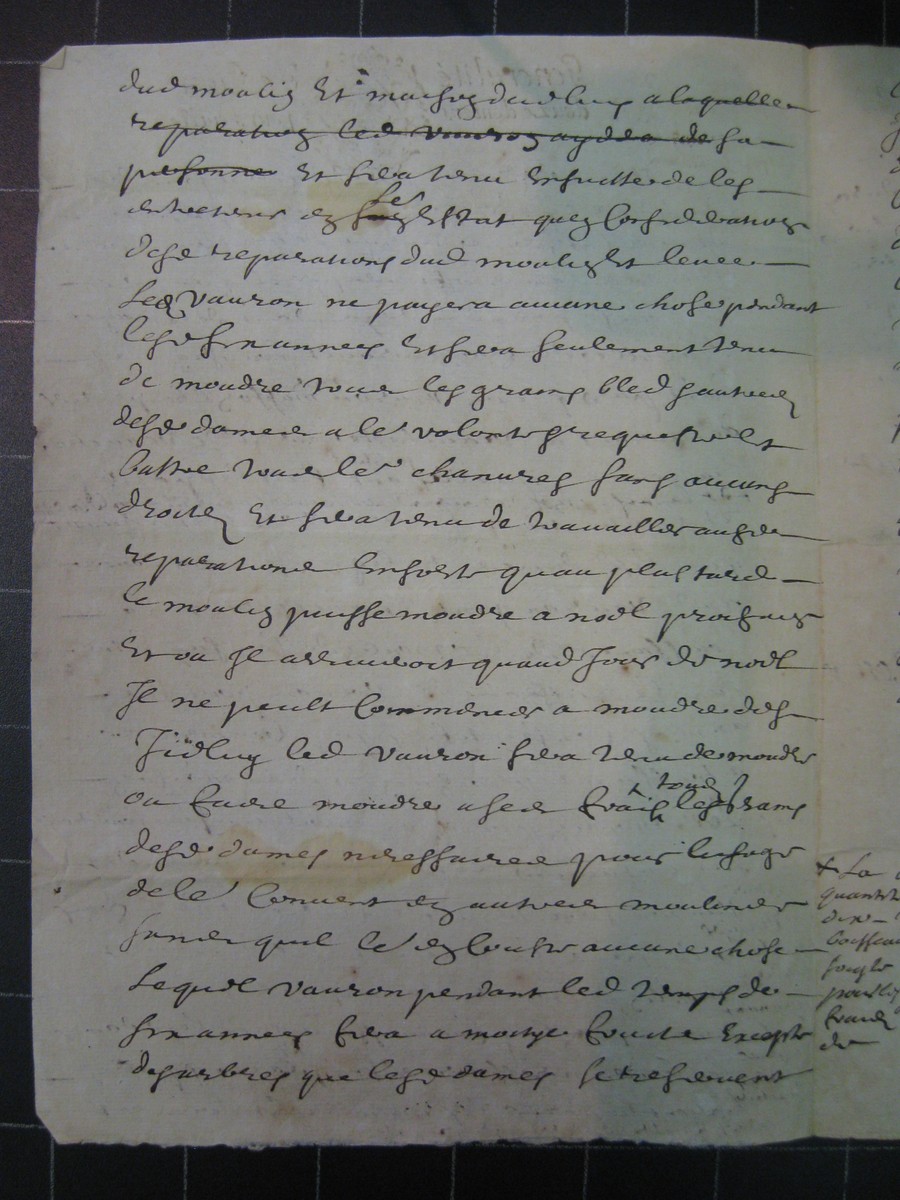 dud moulin Et maison dud lieu a laquelle
reparation led vauron aydera de sa
personne Et sera tenu Ensuitte de les
entretenir en son Les Estat quen consideration
desd reparations dud moulin Et levee
Led vauron ne payera aucune chose pendant
lesd six annees Et sera seulement tenu
de moudre tous les grains bled
desd dames a le volonte Et
battre tous le chanvres sans aucuns
droits Et sera tenu de travailler ausd
reparations En sorte quau plus tard
le moulin puisse moudre a noel prochain
Et ou Il arriveroit quaud Jour de noel
Il ne peult Commencer a moudre des
Icelluy led vauron sera tenu de moudre
ou faire moudre a ses frais tous les grains
desd dames necessaires pour lusage
de le Convent en autres moulins
sans quil le en couste aucune chose
Lequel vauron pendant led temps de
six annees fera a moitye fruits Excepte
des arbres que lesd dames se reservent
+ La
quantite
de
boisseau
seigle
pour
de